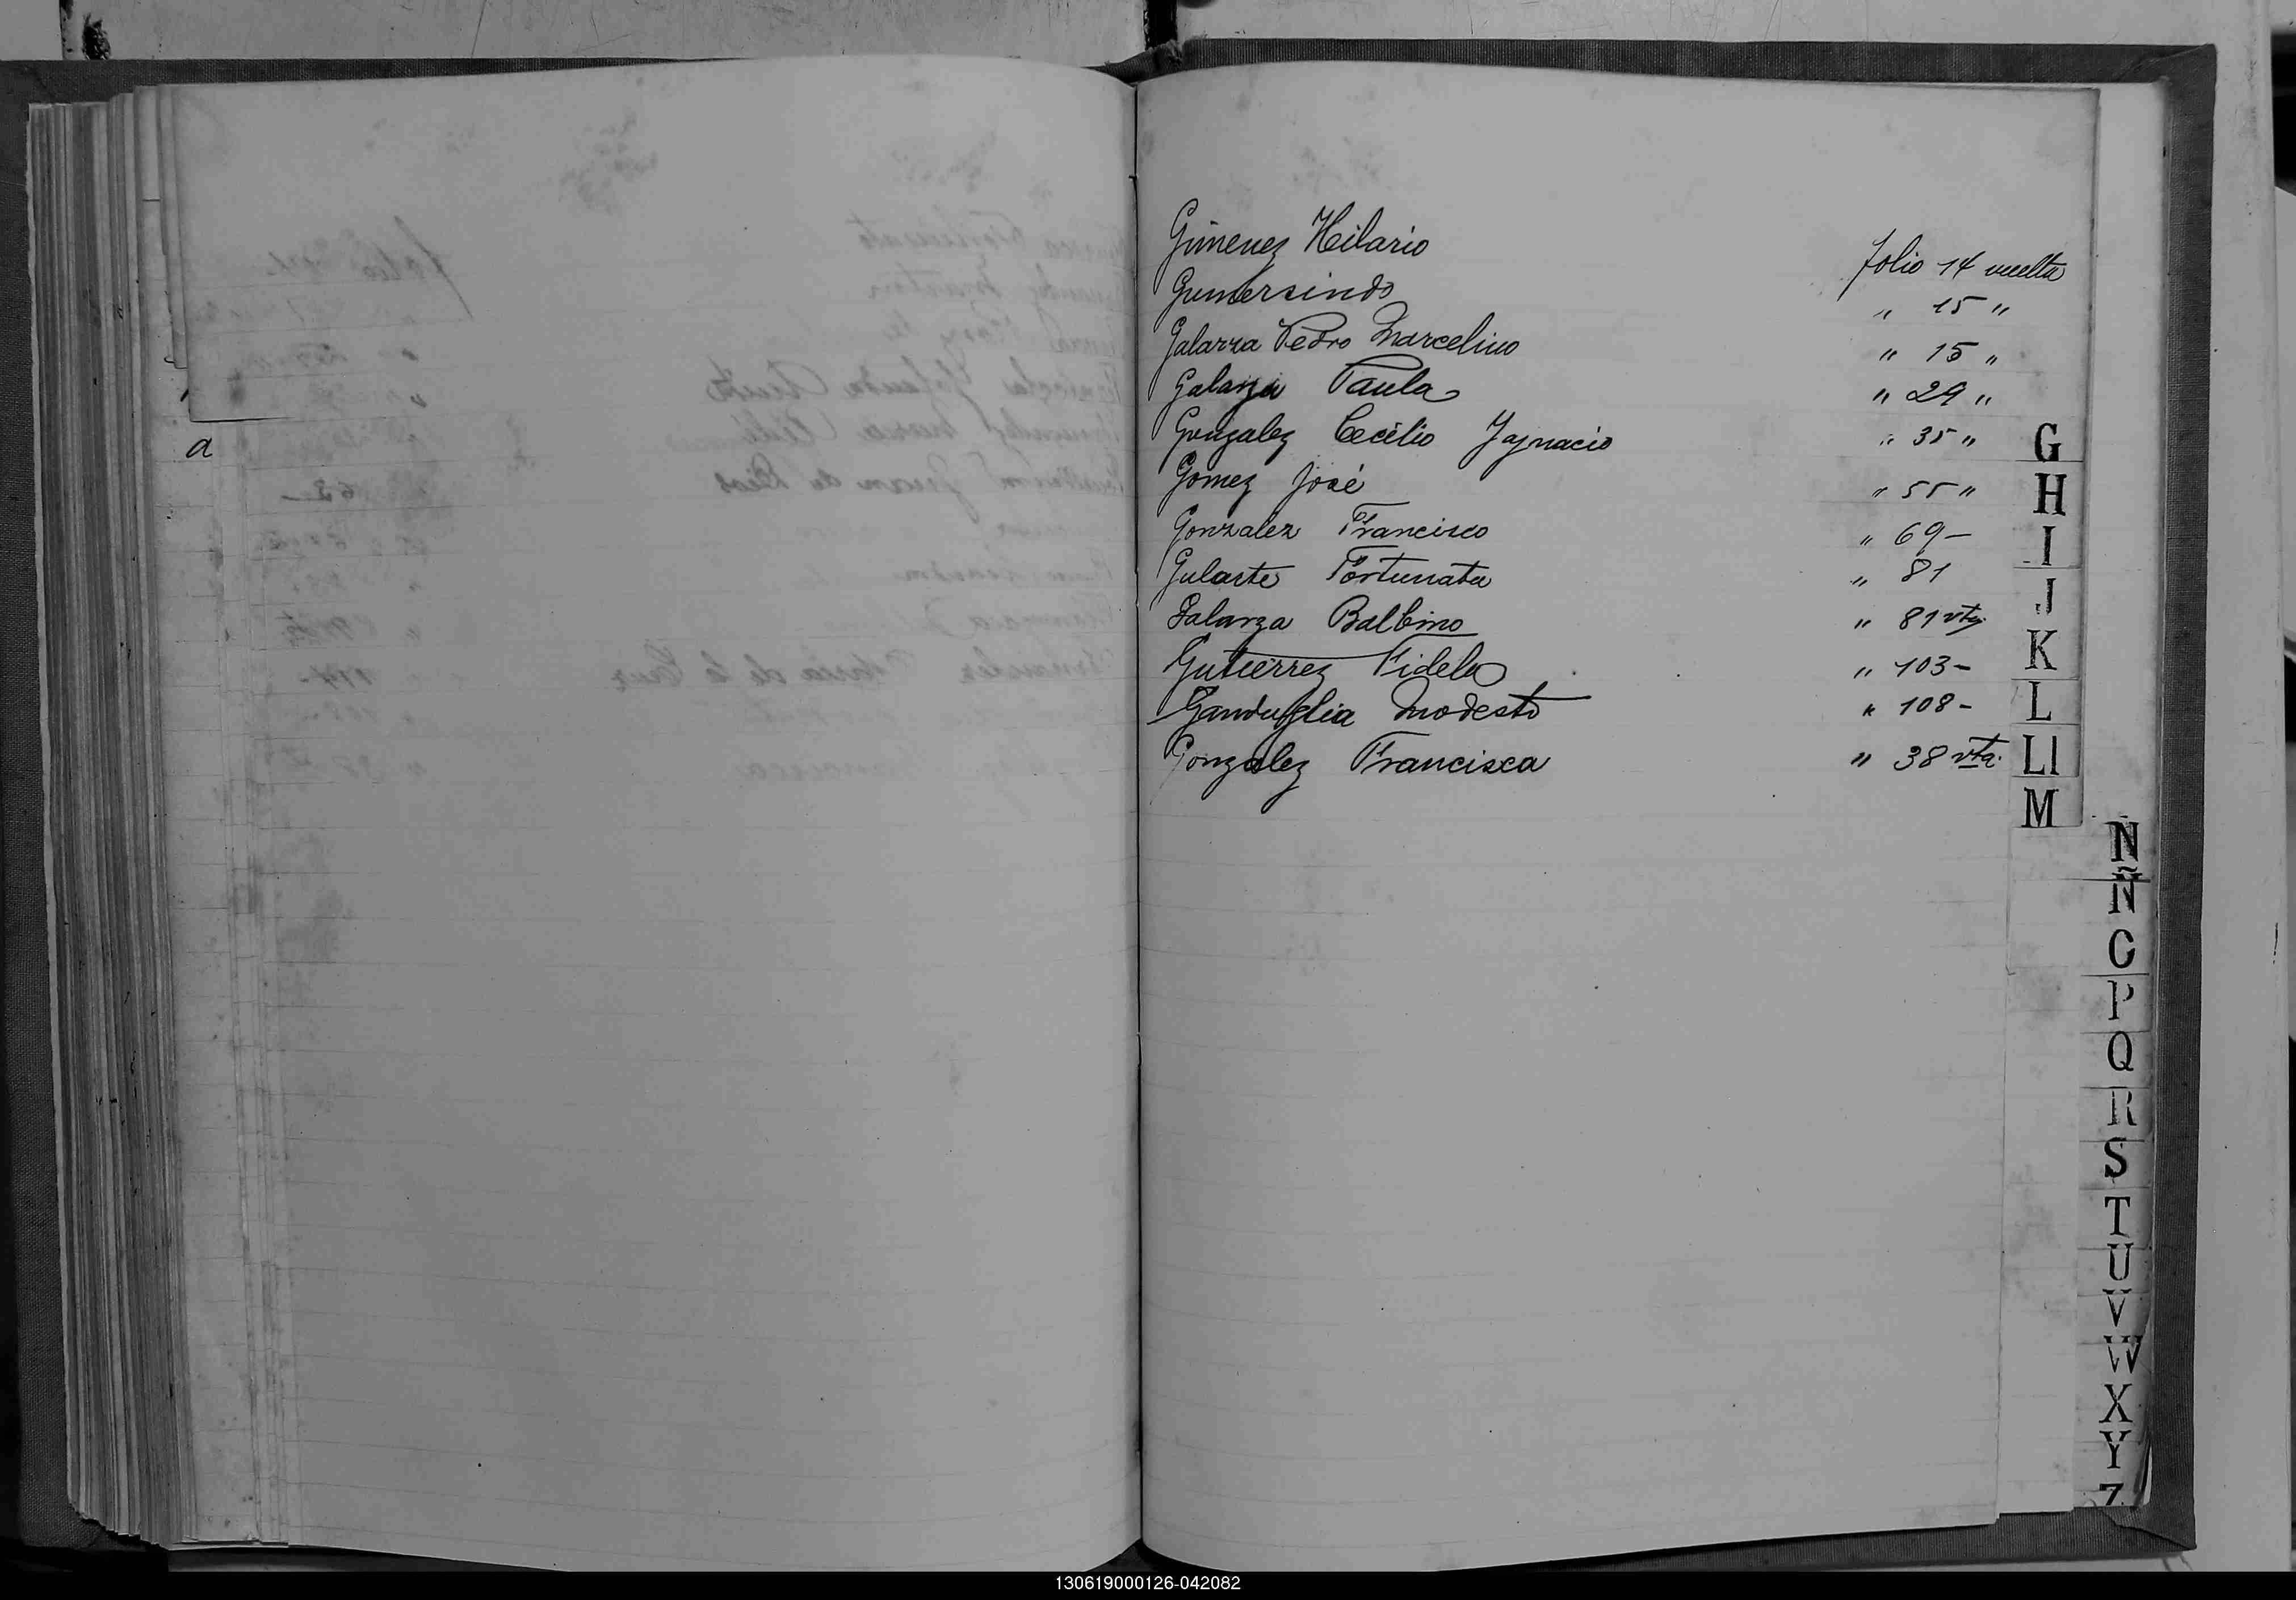 a
Gimenez Hilario folio 14 vuelta
Gumersindo " 15 "
Galarza Pedro Marcelino " 15 "
Galarza Paula " 29 "
Gonzalez Cecilio Ygnacio " 35 "
Gomez José " 55 "
Gonzalez Francisco " 69 -
Gularte Fortunata " 81
Galarza Balbino " 81 vta.
Gutierrez Fidela " 103 -
Ganduglia Modesto " 108 -
Gonzalez Francisca " 38 vta.
G
H
I
J
K
L
Ll
M
N
Ñ
O
P
Q
R
S
T
U
V
W
X
Y
Z
130619000126-042082